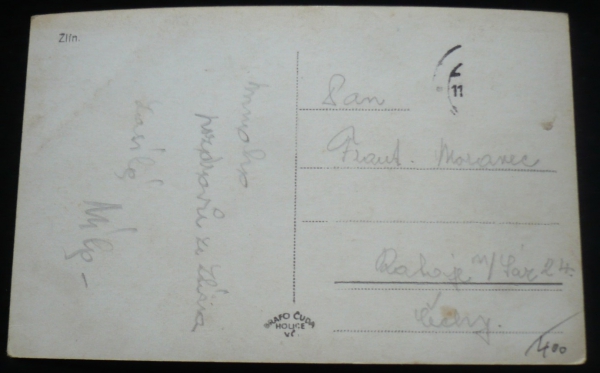 Zlín.
mnoho
pozdravů ze Zlína
zasílá
Pan
Frant. Moravec
n/Sáz 24.
Čechy.
GRAFO ČUDA
HOLICE
V Č.
11
400